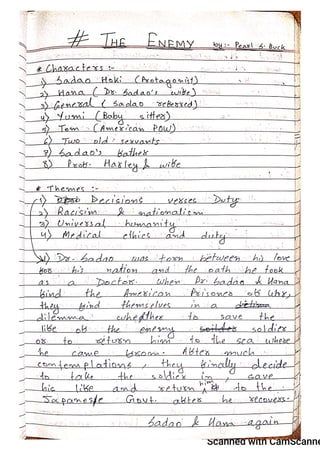 # THE ENEMY by:- Pearl S. Buck
* Characters :-
1) Sadao Hoki (Protagonist)
2) Hana ( Dr. Sadao's wife)
3) General ( Sadao referred)
4) Yumi (Baby sitter)
5) Tom (American POW)
6) Two old servants
7) Sadao's Father
8) Prof. Harley & wife
* Themes :-
1) Decisions verses Duty
2) Racisim & nationalism
3) Universal humanity
4) Medical ethics and duty
Dr. Sadao was torn between his love
for his nation and the oath he took
as a Doctor. When Dr. Sadao & Hana
find the American Prisoner of war,
they find themselves in a
dilemma whether to save the
life of the enemy soldier
or to return him to the sea where
he came from. After much
contemplations, they finally decide
to take the soldier in, save
his life and return him to the
Japanese Govt. after he recovers.
Sadao & Hana again
Scanned with CamScanne